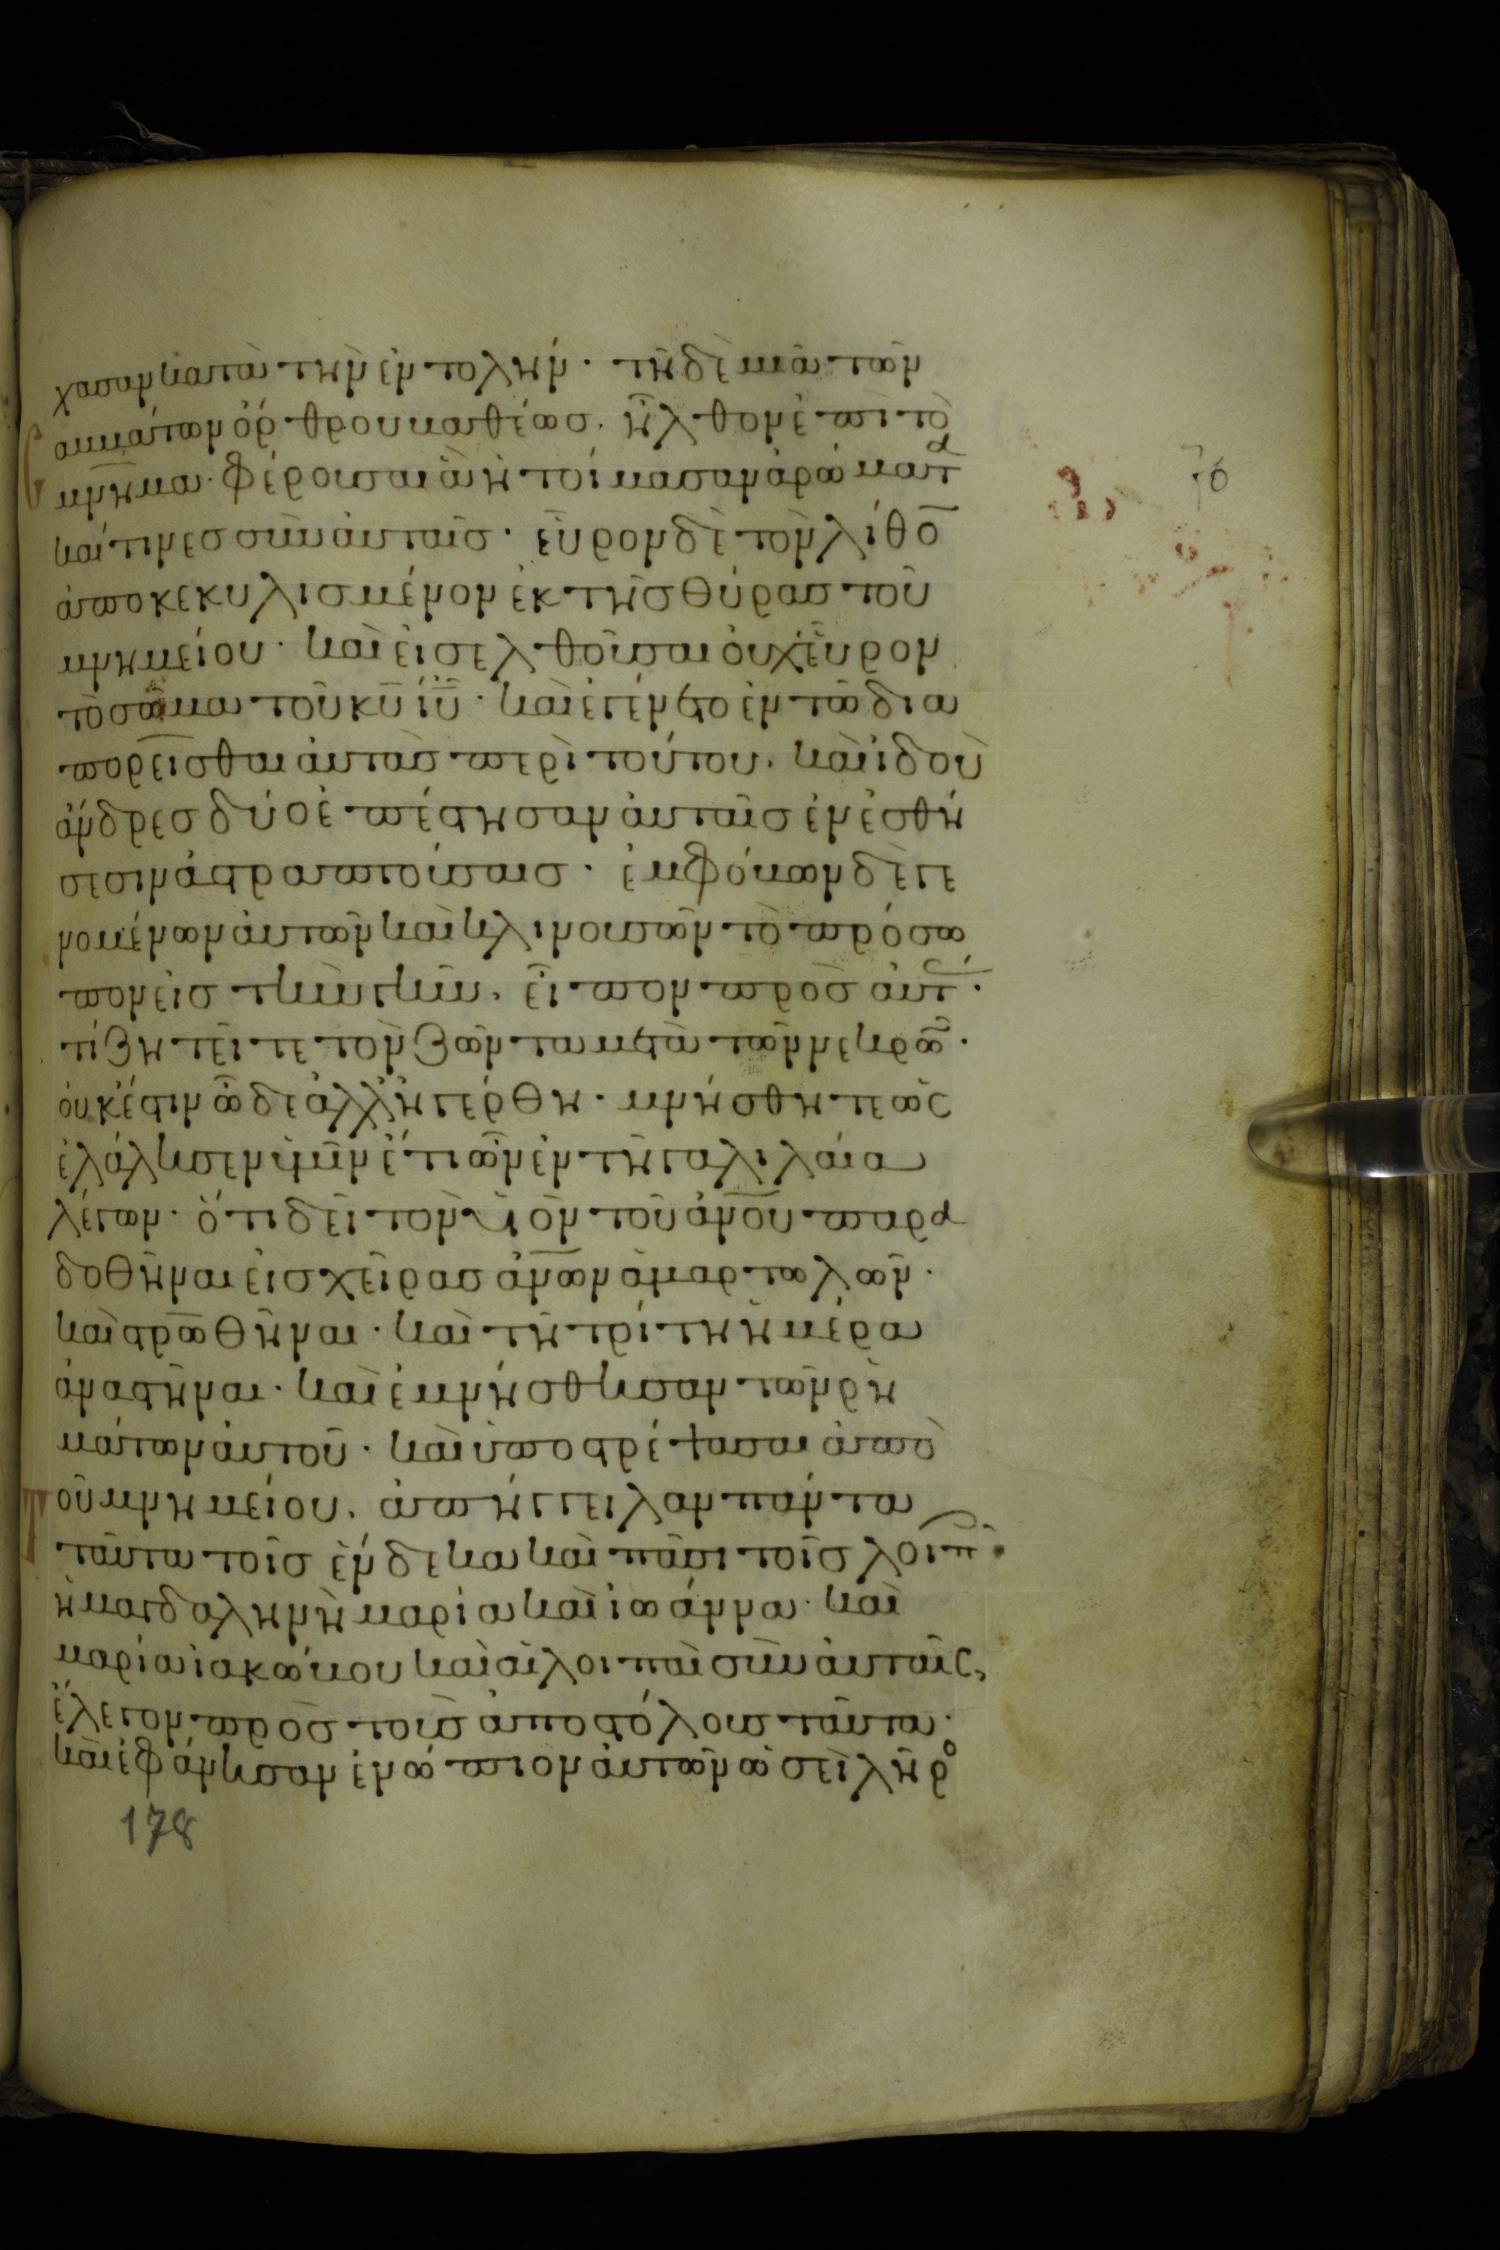 χασαν κατὰ τὴν ἐντολήν· τῆ δὲ μιᾶ τῶν
σαββάτων ὄρθρου βαθέως· ἦλθον ἐπὶ τὸ
μνῆμα· φέρουσαι ἃ ἡτοίμασαν ἀρώματα
καί τινες σὺν αὐταῖς· εὗρον δὲ τὸν λίθο̅
ἀποκεκυλισμένον ἐκ τῆς θύρας τοῦ
μνημείου· καὶ εἰσελθοῦσαι οὐχ εὗρον
τὸ σῶμα τοῦ κυ̅ ιυ̅· καὶ ἐγένετο ἐν τῶ δια
πορεῖσθαι αὐτὰς περὶ τούτου· καὶ ἰδοὺ
ἄνδρες δύο ἐπέστησαν αὐταῖς ἐν ἐσθή
σεσιν ἀστραπτούσαις· ἐμφόβων δὲ γε
νομένων αὐτῶν καὶ κλινουσῶν τὸ πρόσω
πον εἰς τὴν γῆν· εἶπον πρὸς αὐτ·
τί ζητεῖτε τὸν ζῶντα μετὰ τῶν νεκρῶ̅·
οὐκ ἔστιν ὧδε ἀλλ' ἠγέρθη· μνήσθητε ὡς
ἐλάλησεν ὑμῖν ἔτι ὢν ἐν τῆ γαλιλαία
λέγων· ὅτι δεῖ τὸν υ̅ν τοῦ ἀνο̅υ παρα
δοθῆναι εἰς χεῖρας ἀνω̅ν ἁμαρτωλῶν·
καὶ στρω̅θῆναι· καὶ τῆ τρίτη ἡμέρα
ἀναστῆναι· καὶ ἐμνήσθησαν τῶν ῥη
μάτων αὐτοῦ· καὶ ὑποστρέψασαι ἀπὸ
τοῦ μνημείου· ἀπήγγειλαν πάντα
ταῦτα τοῖς ἕνδεκα καὶ πᾶσι τοῖς λοιπ·
ἡ μαγδαληνὴ μαρία καὶ ἰωάννα· καὶ
μαρία ἰακώβου καὶ αἱ λοιπαὶ σὺν αὐταῖς,
ἔλεγον πρὸς τοὺς ἀποστόλους ταῦτα·
καὶ ἐφάνησαν ἐνώπιον αὐτῶν ὡσεὶ λῆρο
178